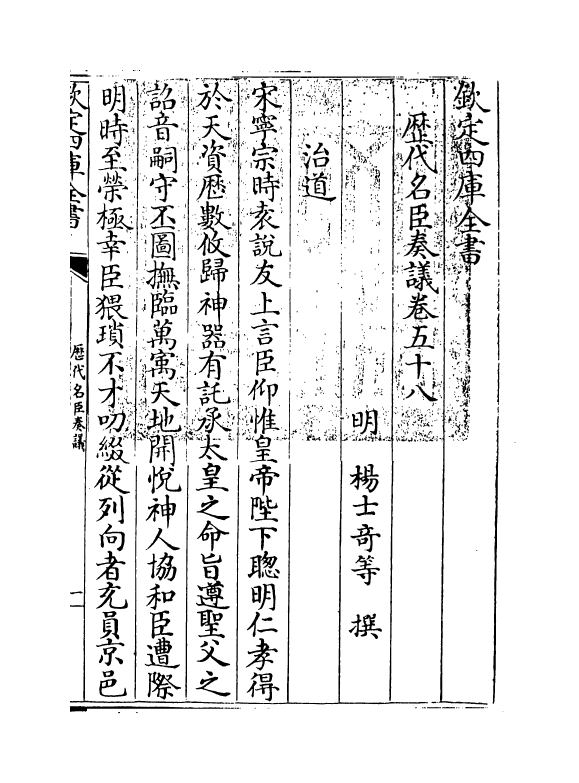 欽定四庫全書
歴代名臣奏議卷五十八
明 楊士竒等 撰
治道
宋寧宗時袁說友上言臣仰惟皇帝陛下聰明仁孝得
於天資歴數攸歸神器有託承太皇之命旨遵聖父之
詔音嗣守丕圖撫臨萬㝢天地開悅神人協和臣遭際
明時至榮極幸臣猥瑣不才叨綴從列向者充員京邑
欽定四庫全書
歴代名臣奏議
一